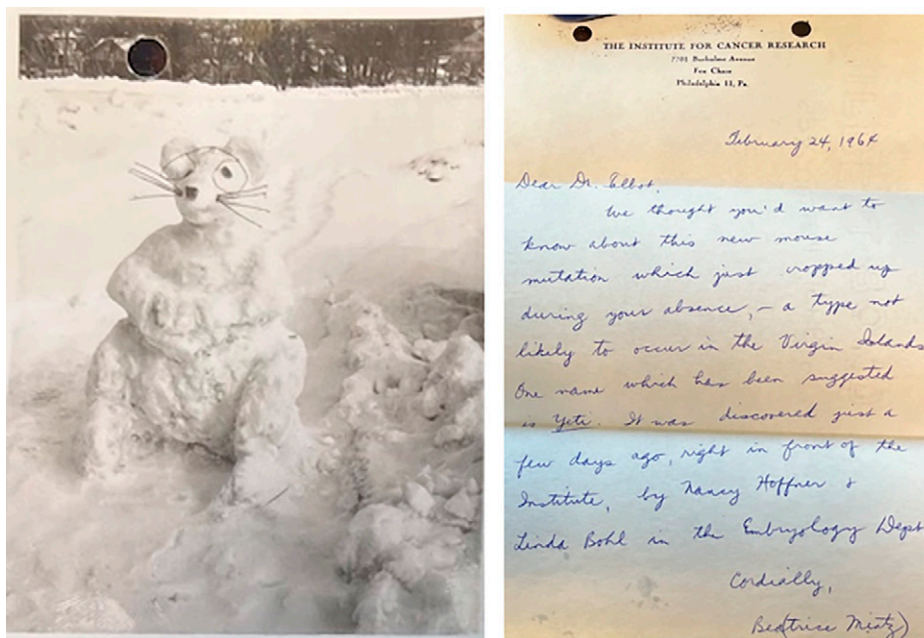 THE INSTITUTE FOR CANCER RESEARCH
7701 Burholme Avenue
Fox Chase
Philadelphia 11, Pa.
February 24, 1964
Dear Dr. Talbot,
We thought you'd want to
know about this new mouse
mutation which just cropped up
during your absence, – a type not
likely to occur in the Virgin Islands
One name which has been suggested
is Yeti. It was discovered just a
few days ago, right in front of the
Institute, by Nancy Hoffner &
Linda Bohl in the Embryology Dept
Cordially,
Beatrice Mintz)